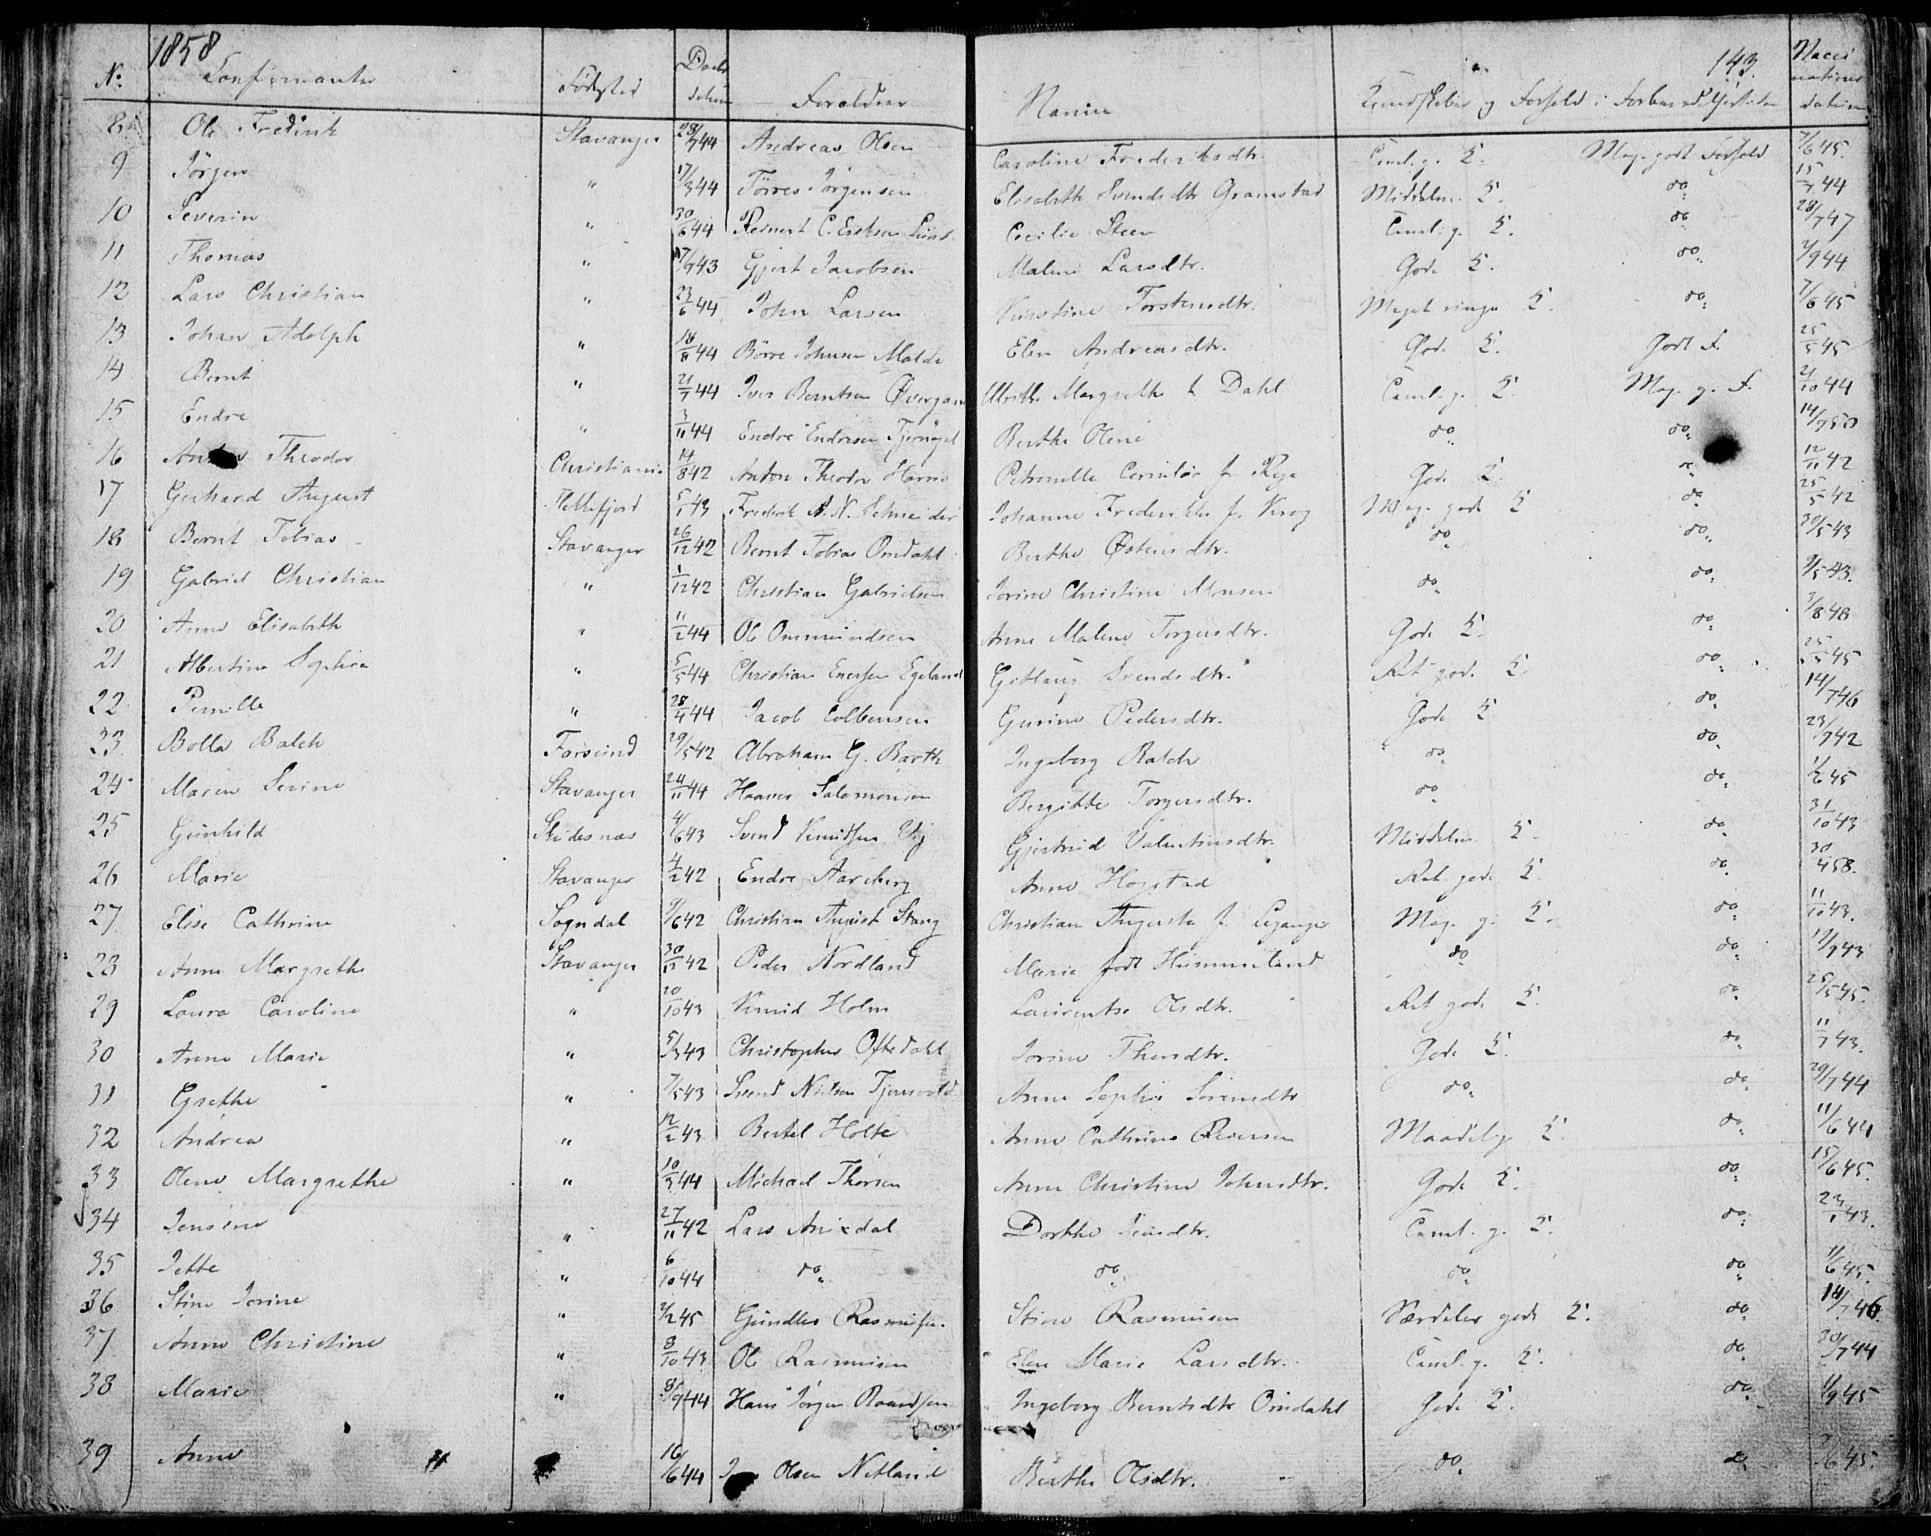 1858 143.
No Confirmanter Fødested Daabsdatum Forældrer Navne Kundskaber og Forhold i Forberedelsestiden Vaccinations datum
8 Ole Fredrik Stavanger 28/7 44 Andreas Olsen Caroline Frederiksdtr. Teml. g. K. Meg. godt Forhold 7/6 45.
9 Jörgen " 17/3 44 Törres Jörgensen Elisabeth Svendsdtr Gramstad Middelm. K. do 15/7 44
10 Severin " 30/6 44 Reinert C. Eriksen Lund Cecilie Steen Teml. g. K. do 28/7 47
11 Thomas " 17/7 43 Gjert Jacobsen Malene Larsdtr. Gode K. do. 7/9 44
12 Lars Christian " 23/6 44 John Larsen Kirstine Torstensdtr. Meget ringe K. do. 7/6 45
13 Johan Adolph " 18/8 44 Börre Johnsen Malde Elen Andreasdtr. Gode K. Godt F. 25/5 45
14 Bernt " 21/7 44 Iver Berntsen Övergaard Margrethe f. Dahl Teml. g. K. Meg. g. F. 21/10 44
15 Endre " 3/11 44 Endre Endresen Tjernagel Berthe Olene do do. 14/9 50
16 Theodor Christiania 14/8 42 Anton Theodor Harris Petronelle f. Reje Gode K. do 12/11 42
17 Gerhard August Flekkefjord 5/1 43 Frederik A. N. Schneider Johanne Frederikke f. Krog Meg. gode K do 25/5 42
18 Bernt Tobias Stavanger 26/12 42 Bernt Tobias Omdahl Berthe Östensdtr. do do. 30/5 43
19 Gabriel Christian " 1/12 42 Christian Gabrielsen Jorine Christine Monsen do do. 9/5 43.
20 Anne Elisabeth " 11/2 44 Ole Ommundsen Anne Malene Torgersdtr. Gode K. do. 3/8 48
21 Albertine Sophie " 5/5 44 Christian Enersen Egeland Gitlaug Svendsdtr. Ret gode K. do. 25/5 45
22 Pernille " 28/4 44 Jacob Colbensen Gurine Pedersdtr. Gode K do. 14/7 46
23. Bolla Balch Farsund 29/5 42 Abraham G. Barth Ingeborg Balch do do. 23/9 42
24 Maren Serine Stavanger 24/11 44 Haaver Salomonsen Bergitte Torgersdtr. do do. 1/6 45
25 Gunhild Skidesnæs 4/6 43 Svend Knudsen Vig Gjertrud Valentinsdtr. Middelm K. do. 31/10 43
26 Marie Stavanger 4/2 42 Endre Aareberg Anne Hogstad Ret gode K. do. 30/4 58.
27. Elise Cathrine Sogndal 9/6 42 Christian August Stang Christian Augusta f. Meg. g. K. do. 11/10 43.
28 Anne Margrethe Stavanger 30/11 42 Peder Nordland Marie födt Hummeland do do. 19/9 43
29 Laura Caroline " 20/10 43 Knud Holm Laurentse Olsdtr. Ret gode K. do. 25/5 45.
30 Anne Marie " 5/3 43 Christopher Oftedahl Jorine Thorsdtr. Gode K. do. 11/7 43.
31 Grethe " 7/5 43 Svend Nielsen Tjensvold Anne Sophie Sörensdtr do. do. 29/7 44
32 Andrea " 12/2 43 Bertel Holte Anne Cathrine Reiersen Maadelig K. do. 11/6 44
33 Olene Margrethe " 10/3 44 Michael Thorsen Anne Christine Johnsdtr. Gode K. do. 15/6 45.
34 Jensine " 27/11 42 Lars Anixdal Dorthe Jensdtr. Teml. g. K. do. 23/1 43.
35 Jette " 6/10 44 do. do. do. do. 11/6 45.
36 Stine Jorine " 2/2 45 Gundle Rasmusen. Stine Rasmusen Særdeles gode K. do. 14/7 46.
37. Anne Christine " 8/10 43 Ole Rasmusen Elen Marie Larsdtr. Teml. g. K. do. 30/7 44
38 Marie " 8/9 44 Hans Jörgen Ingeborg Berntsdtr Omdahl Gode K. do. 11/9 45
39 Anne 16/6 44 Olsen Netland Berthe Olsdtr. do. do. 7/6 45.